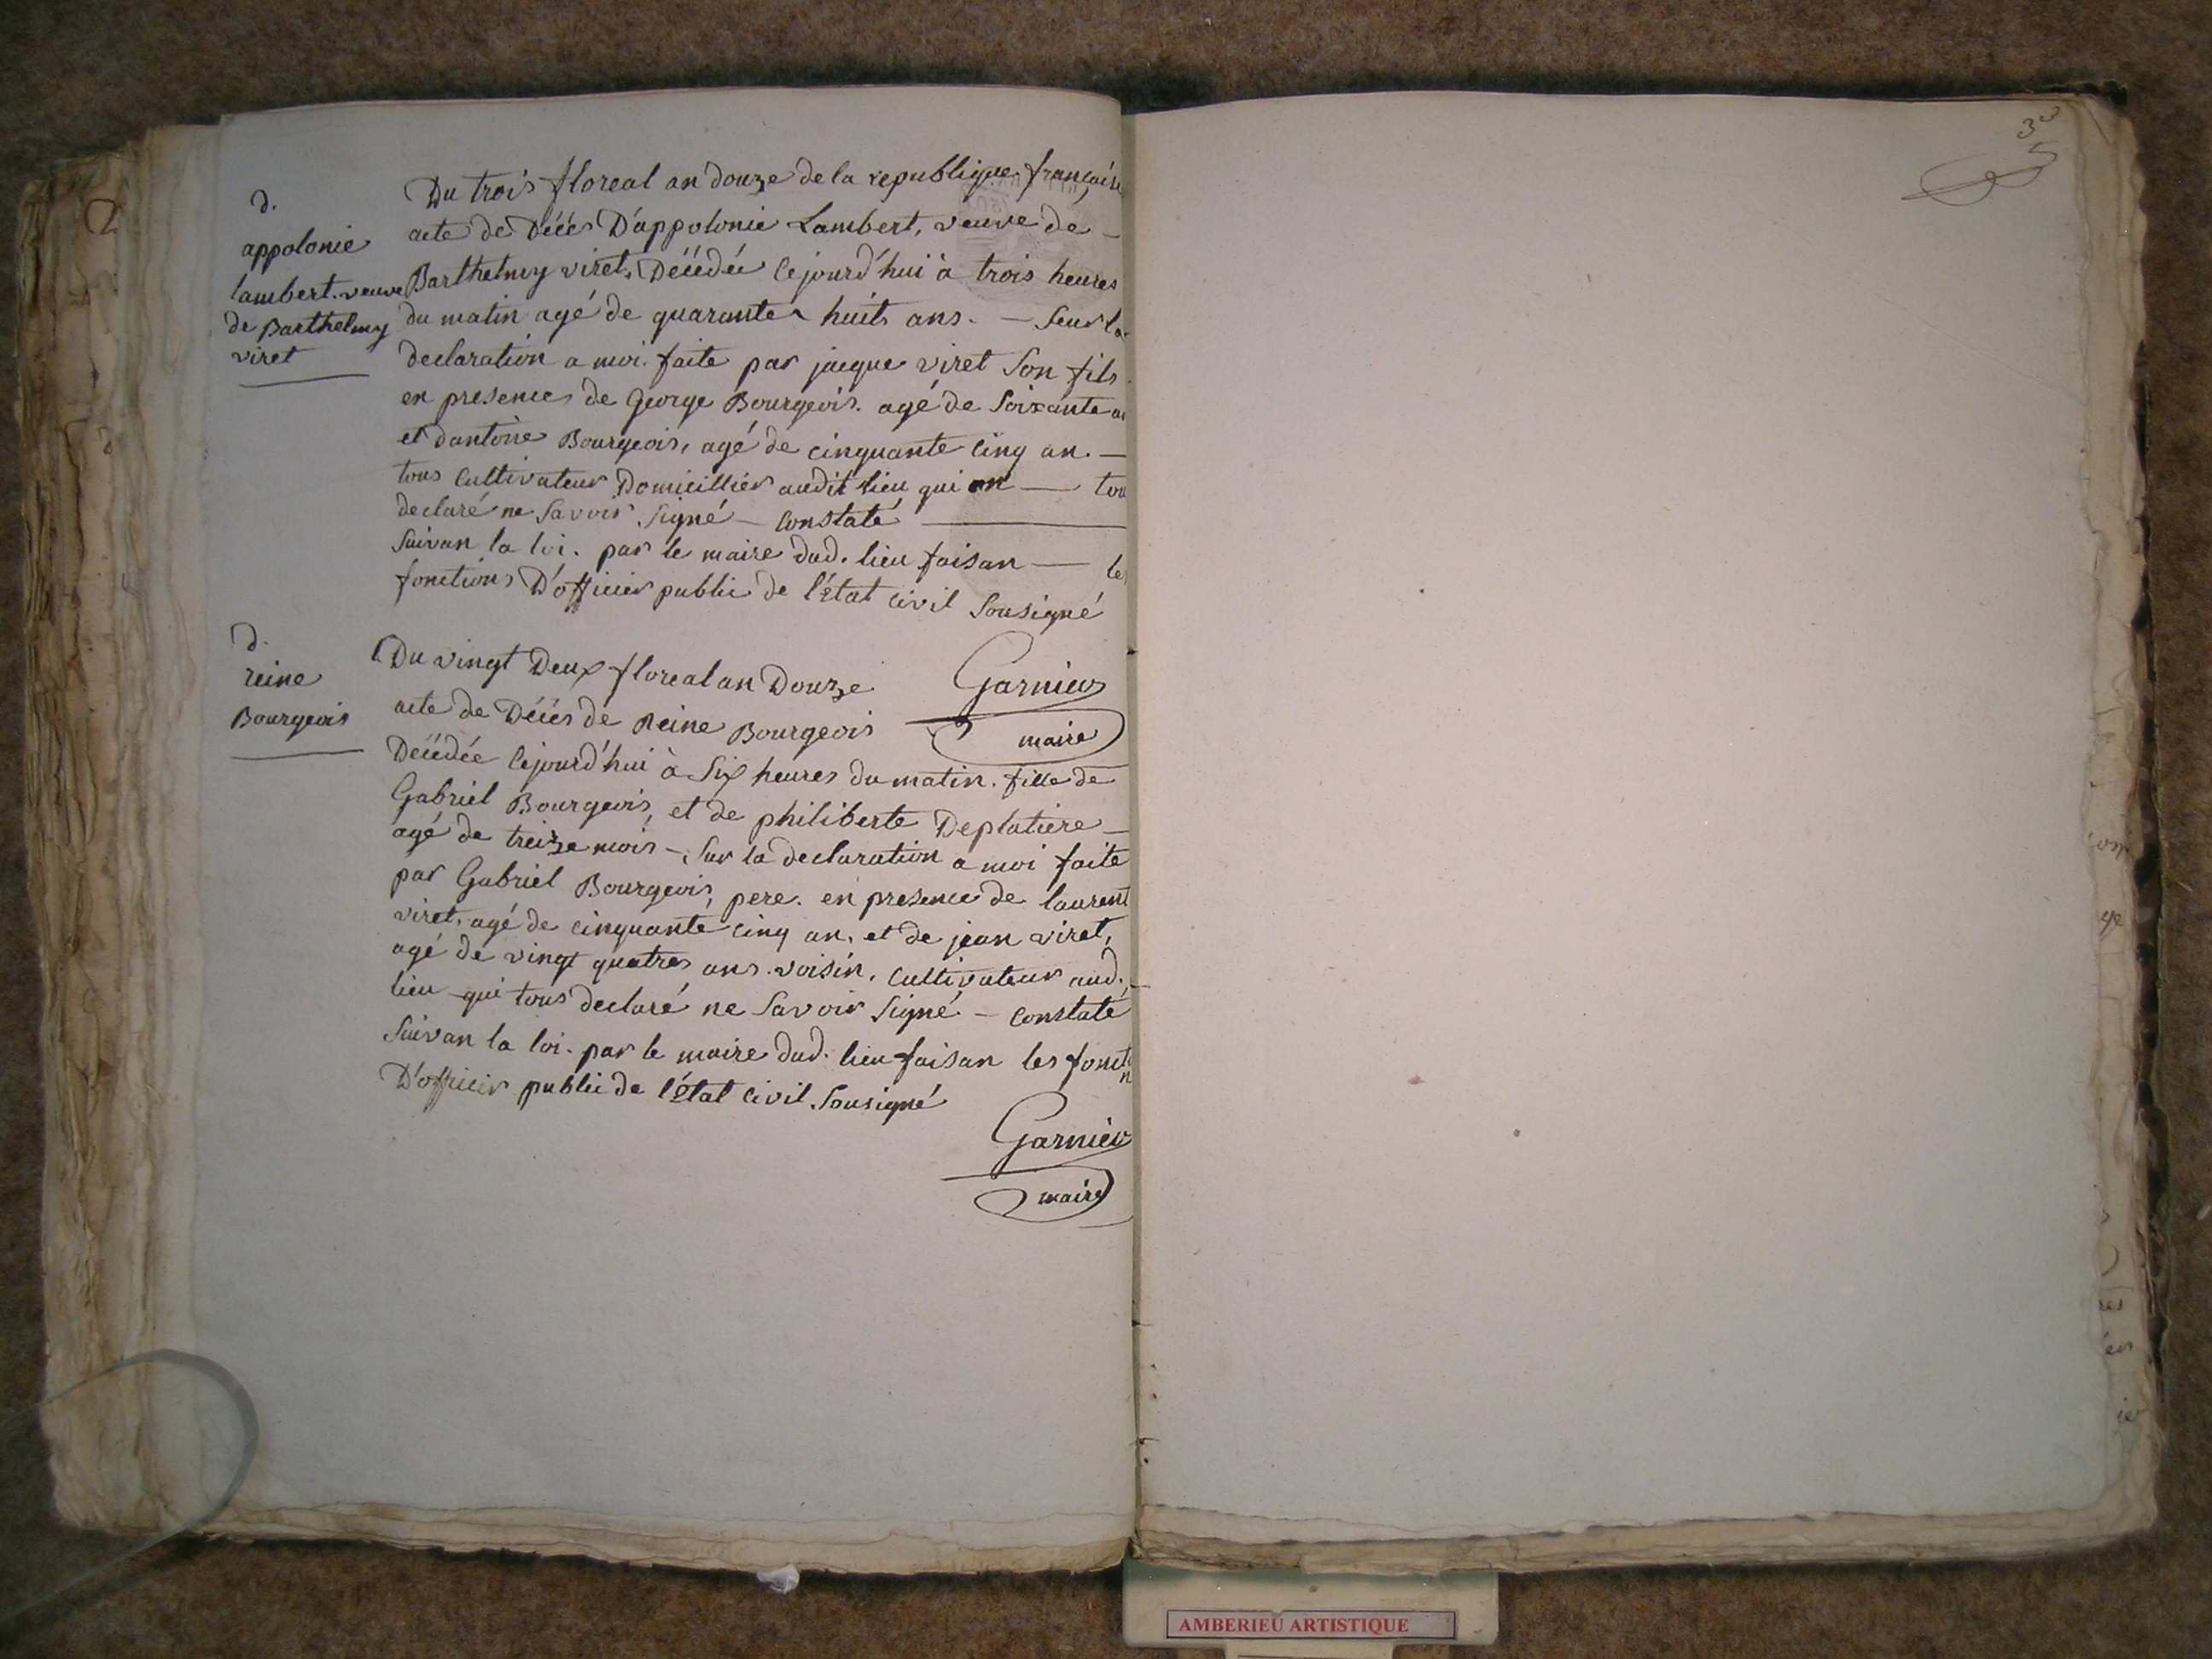 d.
appolonie
lambert. veuve
de Barthelmy
viret
Du trois floreal an douze de la republique française
acte de Décés D'appolonie Lambert, veuve de -
Barthelmy viret, Décédée cejourd'hui à trois heures
du matin agé de quarante huits ans. - Seur la
declaration a moi faite par jacque viret Son fils
en presences de George Bourgeois. agé de Soixante an
et dantoine Bourgeois, agé de cinquante cinq an. -
tous Cultivateur Domicilliés audit lieu qui on - tou
declaré ne Savoir Signé - Constaté
Suivan la loi. par le maire dud. lieu faisan - les
fonctions D'officier public de l'état civil Sousigné
Garnier
maire
d.
reine
Bourgeois
Du vingt Deux floreal an Douze
acte de Décés de Reine Bourgeois
Décédée Cejourd'hui à Six heures du matin. fille de
Gabriel Bourgeois, et de philiberte Deplatiere -
agé de treize mois -, Sur la declaration a moi faite
par Gabriel Bourgeois, pere. en presence de laurent
viret, agé de cinquante cinq an, et de jean viret,
agé de vingt quatres ans. voisin, Cultivateur aud. -
lieu qui tous declaré ne Savoir Signé. - Constaté
Suivan la loi. par le maire dud. lieu faisan les foncton
D'officier public de l'état Civil. Sousigné
Garnier
maire
33
AMBERIEU ARTISTIQUE